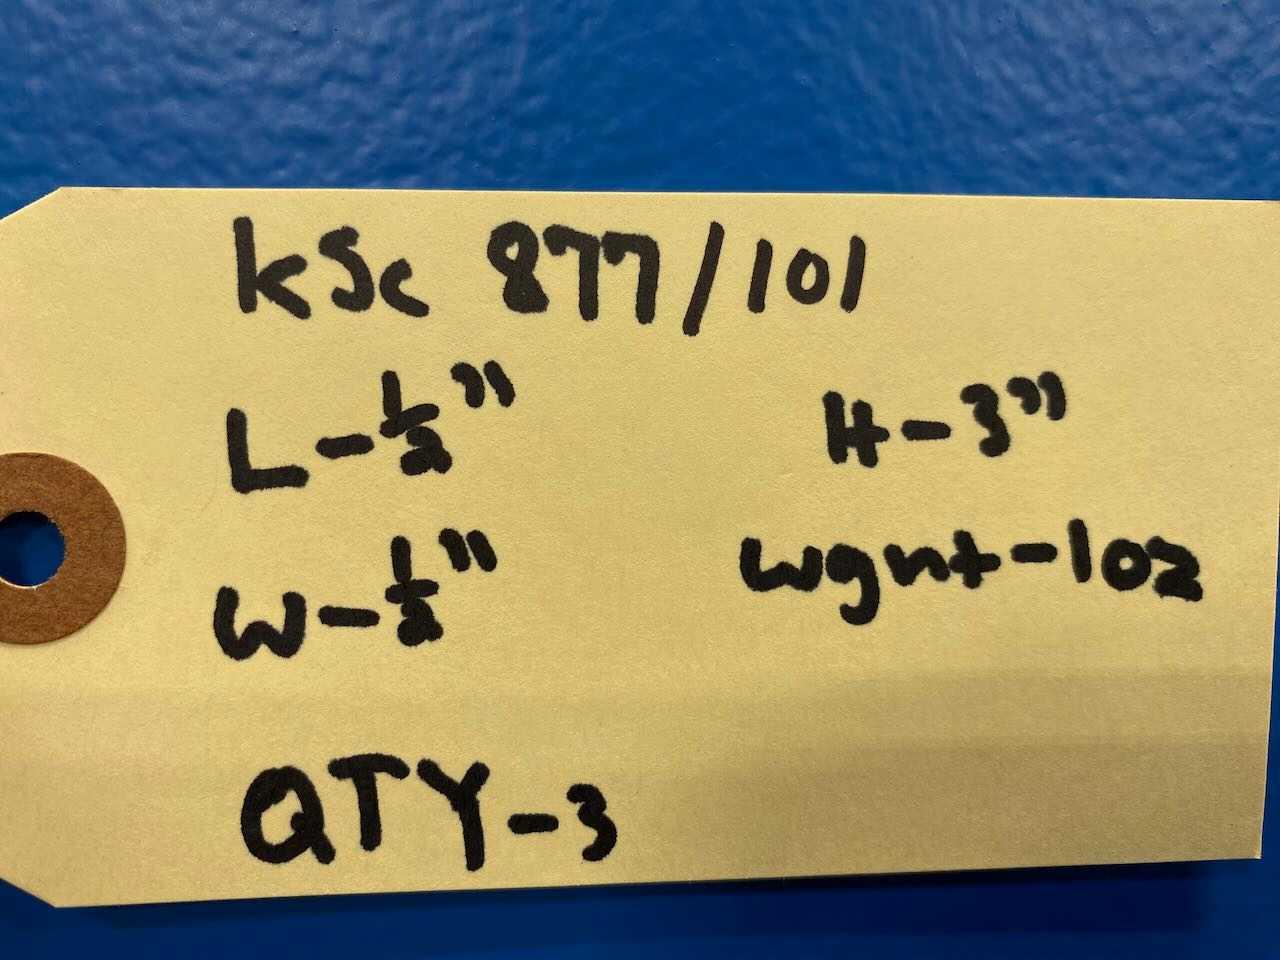 KSC 877/101
L-1/2" H-3"
W-1/2" Wght-1oz
QTY-3